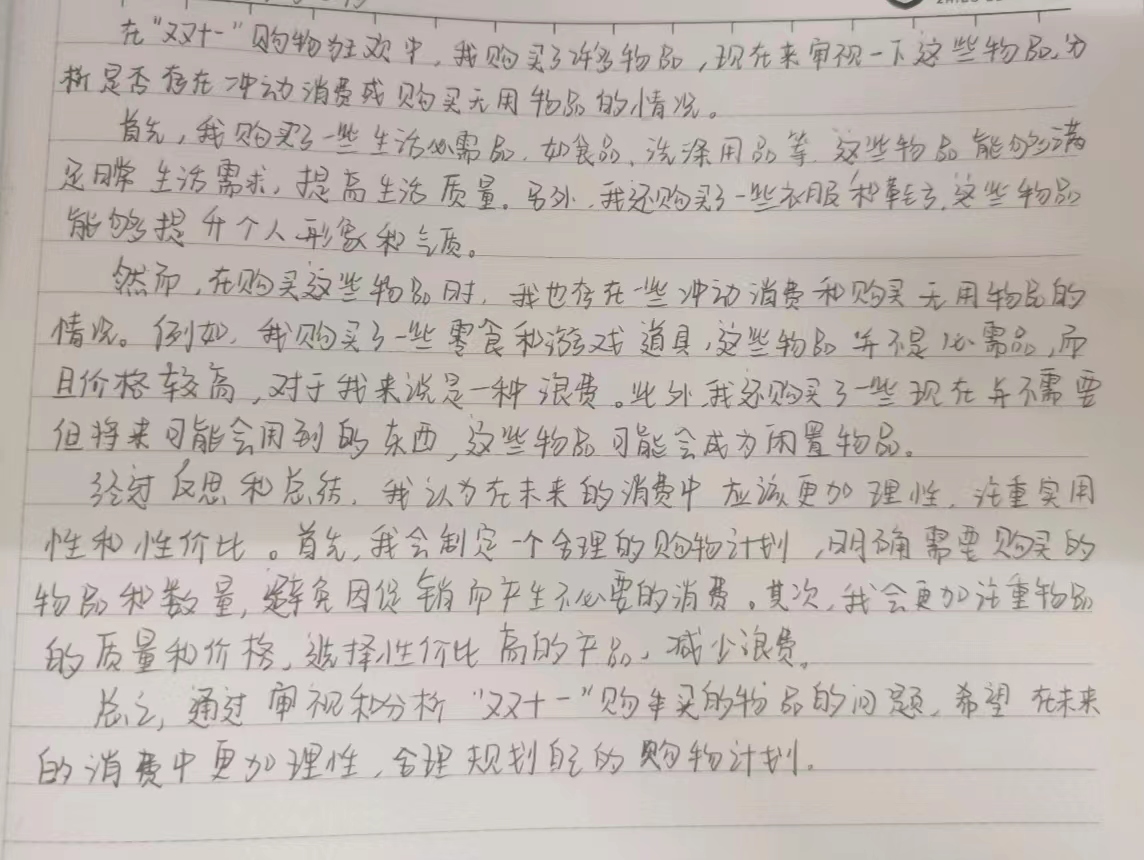 在“双十一”购物狂欢中，我购买了许多物品，现在来审视一下这些物品，分
析是否存在冲动消费或购买无用物品的情况。
首先，我购买了一些生活必需品，如食品、洗涤用品等，这些物品能够满
足日常生活需求，提高生活质量。另外，我还购买了一些衣服和鞋子，这些物品
能够提升个人形象和气质。
然而，在购买这些物品时，我也存在一些冲动消费和购买无用物品的
情况。例如，我购买了一些零食和游戏道具，这些物品并不是必需品，而
且价格较高，对于我来说是一种浪费。此外，我还购买了一些现在并不需要
但将来可能会用到的东西，这些物品可能会成为闲置物品。
经过反思和总结，我认为在未来的消费中应该更加理性，注重实用
性和性价比。首先，我会制定一个合理的购物计划，明确需要购买的
物品和数量，避免因促销而产生不必要的消费。其次，我会更加注重物品
的质量和价格，选择性价比高的产品，减少浪费。
总之，通过审视和分析“双十一”购买的物品的问题，希望在未来
的消费中更加理性，合理规划自己的购物计划。